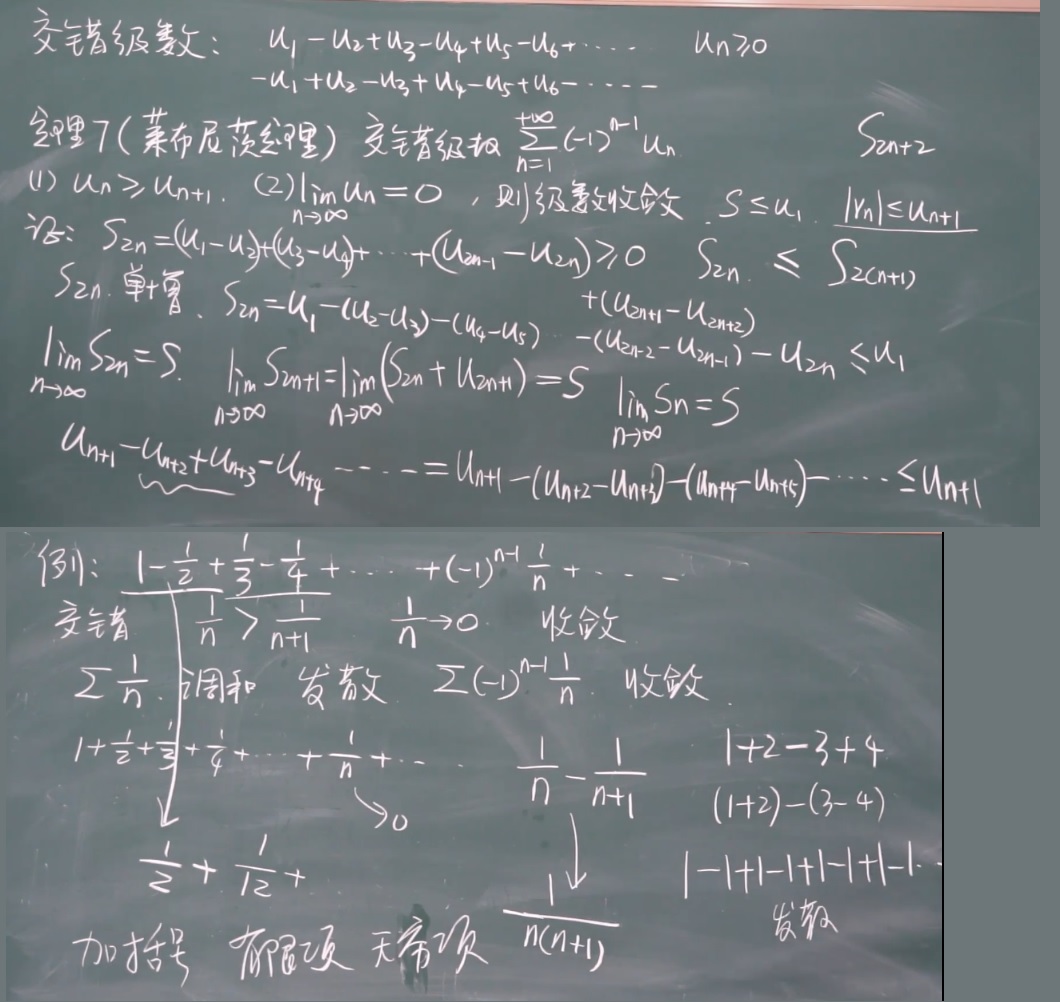 交错级数: u₁ - u₂ + u₃ - u₄ + u₅ - u₆ + ······ uₙ ≥ 0
- u₁ + u₂ - u₃ + u₄ - u₅ + u₆ - ······
定理7(莱布尼茨定理) 交错级数 \sum_{n=1}^{+∞} (-1)^{n-1} uₙ S_{2n+2}
(1) uₙ ≥ u_{n+1}. (2) \lim_{n→∞} uₙ = 0, 则级数收敛. S ≤ u₁. |rₙ| ≤ u_{n+1}
证: S_{2n} = (u₁ - u₂) + (u₃ - u₄) + ···· + (u_{2n-1} - u_{2n}) ≥ 0 S_{2n} ≤ S_{2(n+1)}
+ (u_{2n+1} - u_{2n+2})
S_{2n} 单增. S_{2n} = u₁ - (u₂ - u₃) - (u₄ - u₅) ··· - (u_{2n-2} - u_{2n-1}) - u_{2n} ≤ u₁
\lim_{n→∞} S_{2n} = S. \lim_{n→∞} S_{2n+1} = \lim_{n→∞} (S_{2n} + u_{2n+1}) = S \lim_{n→∞} Sₙ = S
u_{n+1} - u_{n+2} + u_{n+3} - u_{n+4} ······ = u_{n+1} - (u_{n+2} - u_{n+3}) - (u_{n+4} - u_{n+5}) - ······ ≤ u_{n+1}
例: 1 - 1/2 + 1/3 - 1/4 + ······ + (-1)^{n-1} 1/n + ······
交错 1/n > 1/(n+1) 1/n → 0 收敛
Σ 1/n 调和 发散 Σ (-1)^{n-1} 1/n 收敛
1 + 1/2 + 1/3 + 1/4 + ··· + 1/n + ··· 1/n - 1/(n+1) 1 + 2 - 3 + 4
→ 0 (1+2) - (3-4)
1/2 + 1/12 + 1/(n(n+1)) 1-1+1-1+1-1+1-1···
发散
加括号 有限项 无穷项